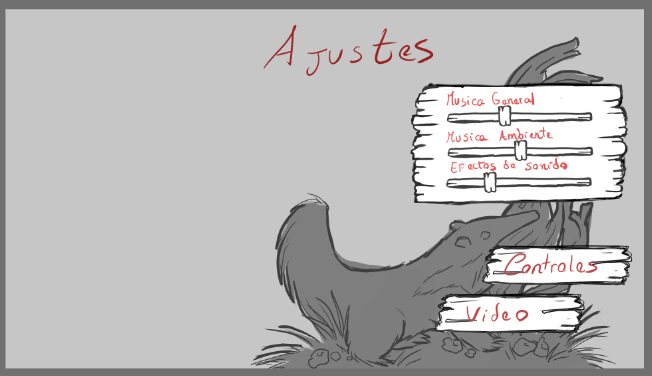 Ajustes
Musica General
Musica Ambiente
Efectos de sonido
Controles
Video